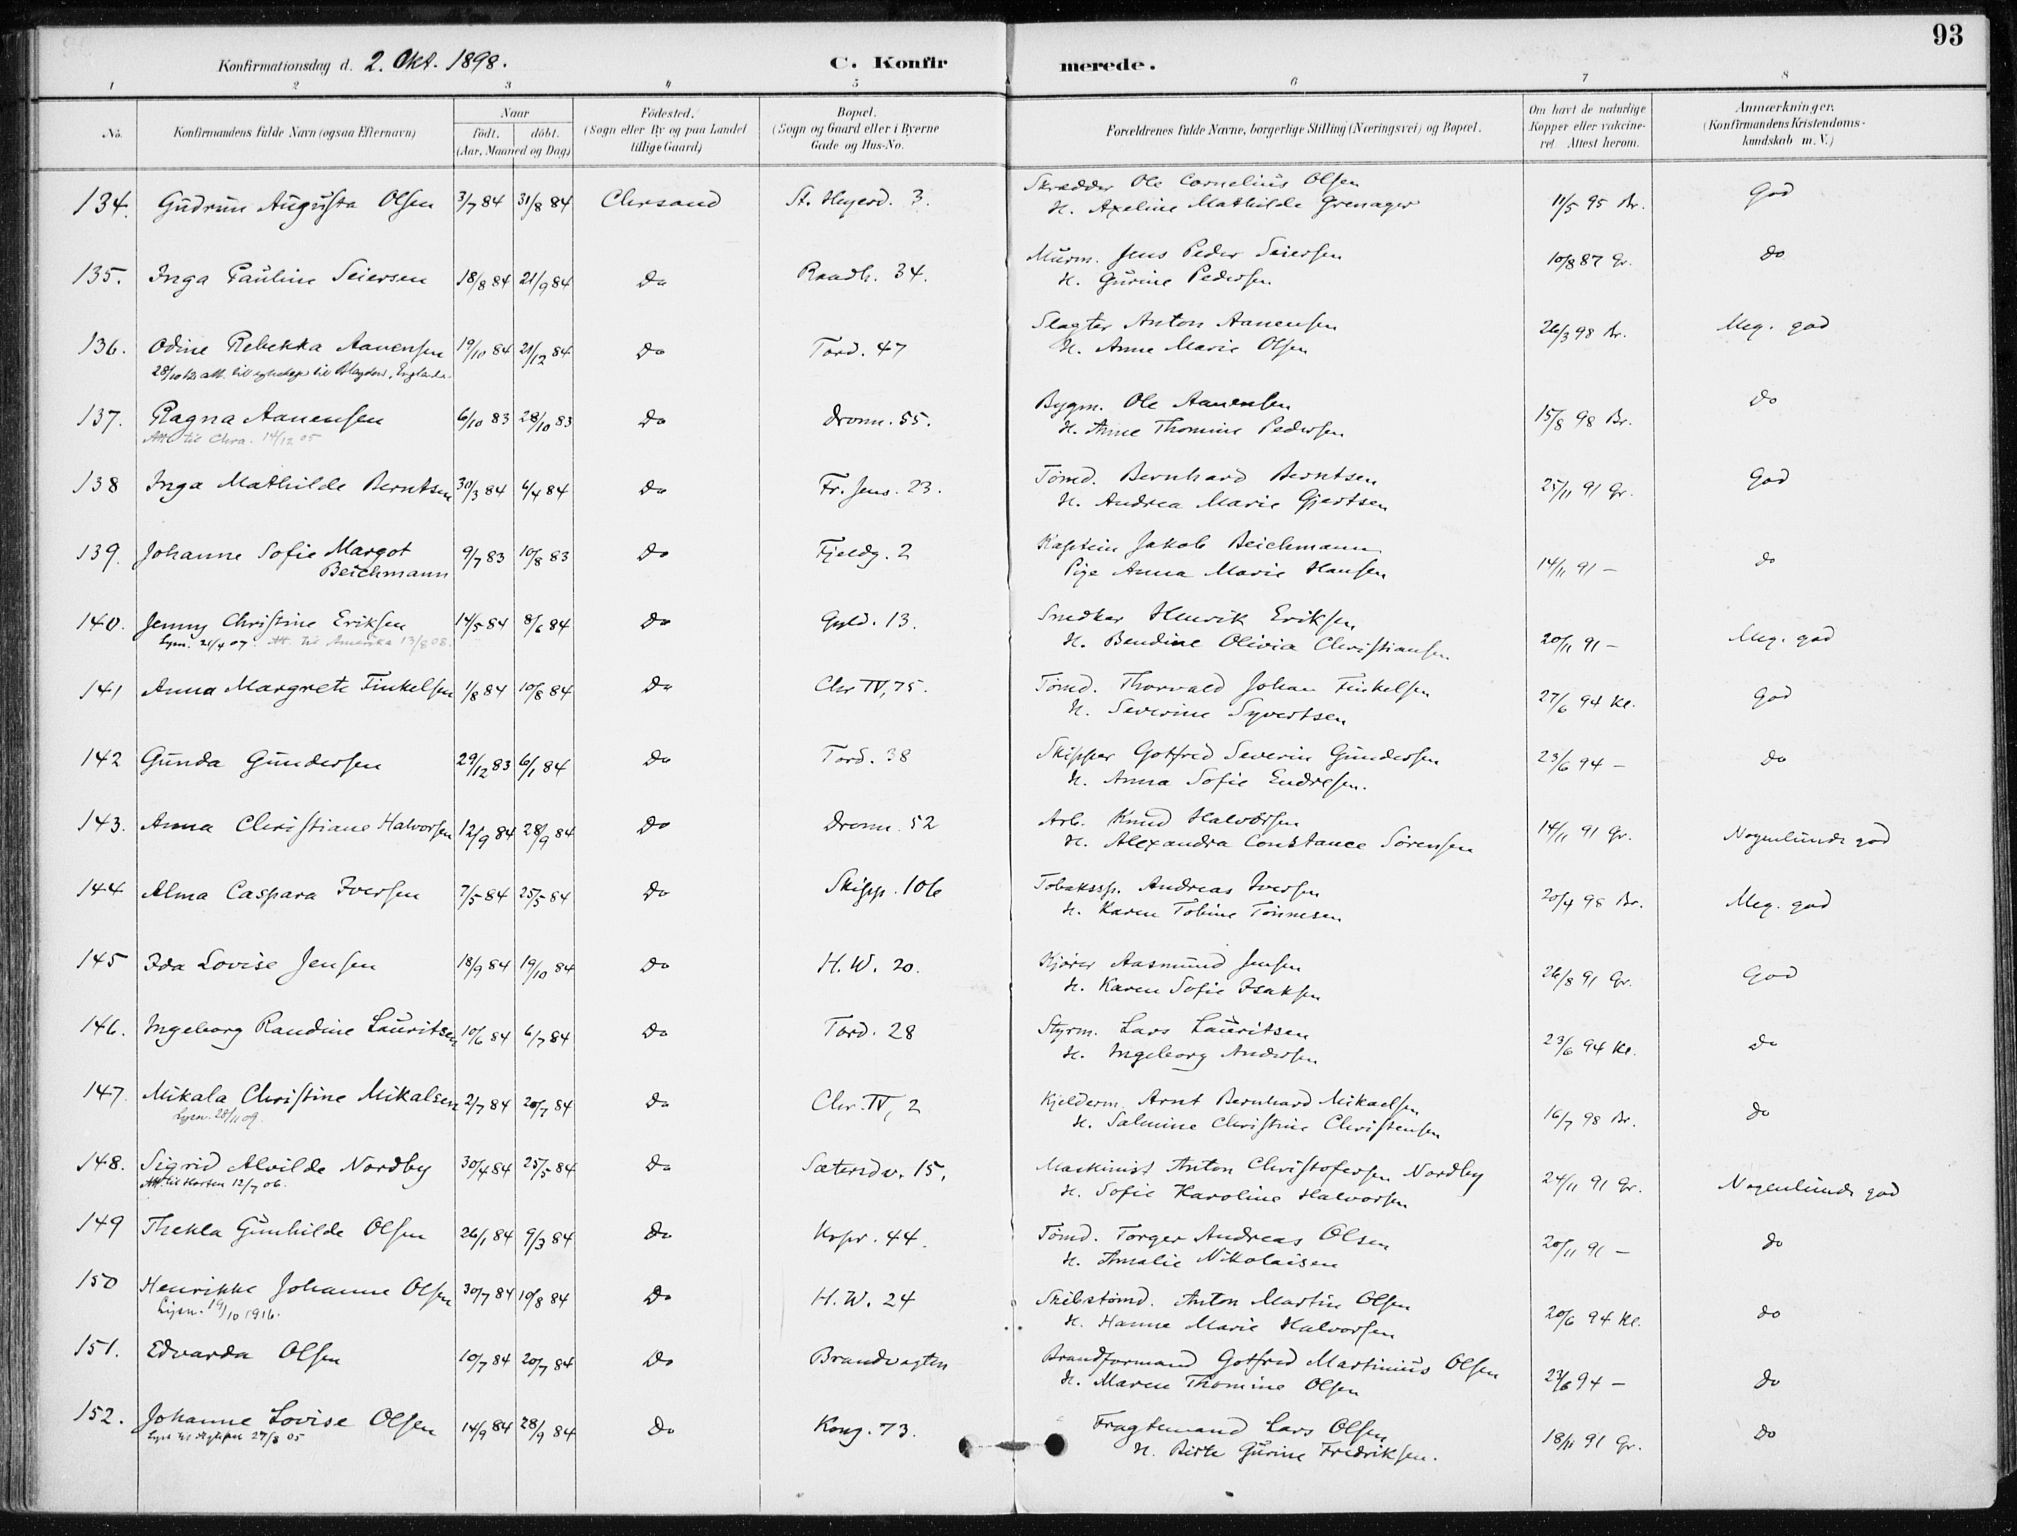 93
Konfirmationsdag d. 2. Okt. 1898. C. Konfirmerede.
1 2 3 4 5 6 7 8
No. Konfirmandens fulde Navn (ogsaa Efternavn) Naar født. døbt. (Aar, Maaned og Dag) Födested. (Sogn eller By og paa Landet tillige Gaard) Bopæl. (Sogn og Gaard eller i Byerne Gade og Hus-No. Forældrenes fulde Navne, borgerlige Stilling (Næringsvei) og Bopæl. Om havt de naturlige Kopper eller vakcineret. Attest herom. Anmærkninger. (Konfirmandens Kristendomskundskab m. V.)
134. Gudrun Augusta Olsen 3/7 84 31/8 84 Chrsand St. Heyerd. 3. Skrædder Ole Cornelius Olsen 11/5 95 Br. God
H. Axeline Mathilde Grenager
135. Inga Pauline Seiersen 18/8 84 21/9 84 Do Raadh. 34. Murm. Jens Peder Seiersen 10/8 87 Gr. Do
H. Gurine Pedersen
136. Odine Rebekka Aanensen 19/10 84 21/12 84 Do Tord. 47 Slagter Anton Aanensen 26/3 98 Br. Meg. god
H. Anne Marie Olsen
137. Ragna Aanensen 6/10 83 28/10 83 Do Dronn. 55. Bygm. Ole Aanensen 15/8 98 Br. Do
Att. til Chra. 14/12 05 H. Anne Thomine Pedersen
138 Inga Mathilde Berntsen 30/3 84 6/4 84 Do Fr. Jens. 23. Tømd. Bernhard Berntsen 25/11 91 Gr. God
H. Andrea Marie Gjertsen
139. Johanne Sofie Margot Beichmann 9/7 83 10/8 83 Do Fjeldg. 2 Kaptein Jakob Beichmann 14/11 91 — Do
Pige Anna Marie Hansen
140. Jenny Christine Eriksen 14/5 84 8/6 84 Do Gyld. 13. Snedker Henrik Eriksen 20/11 91 — Meg. god
Lysn. 21/4 07. Att. til Amerika 13/8 08. H. Bendine Olivia Christiansen
141 Anna Margrete Finkelsen 1/8 84 10/8 84 Do Chr IV, 75. Tømd. Thorvald Johan Finkelsen 27/6 94 Kl. God
H. Severine Syvertsen
142 Gunda Gundersen 29/12 83 6/1 84 Do Tord. 38 Skipper Gotfred Severin Gundersen 23/6 94 — Do
H. Anna Sofie Endresen.
143. Anna Christiane Halvorsen 12/9 84 28/9 84 Do Dronn. 52 Arb. Knud Halvorsen 14/11 91 Gr. Nogenlunde god
H. Alexandra Constance Sørensen
144 Alma Caspara Iversen 7/5 84 25/5 84 Do Skipp. 106 Tobakssp. Andreas Iversen 20/4 98 Br. Meg. god
H. Karen Tobine Tønnesen
145 Ida Lovise Jensen 18/9 84 19/10 84 Do H. W. 20. Kjører Aasmund Jensen 26/8 91 Gr. God
H. Karen Sofie Isaksen
146. Ingeborg Randine Lauritsen 10/6 84 6/7 84 Do Tord. 28 Styrm. Lars Lauritsen 23/6 94 Kl. Do
H. Ingeborg Andersen
147. Mikala Christine Mikalsen 2/7 84 20/7 84 Do Chr. IV, 2 Kjelderm. Arnt Bernhard Mikaelsen 16/7 98 Br. Do
Lysn. 28/11 09. H. Salmine Christine Christensen
148. Sigrid Alvilde Nordby 30/4 84 25/5 84 Do Sætersdv. 15. Maskinist Anton Christofersen Nordby 24/11 91 Gr. Nogenlunde god
Att. til Horten 12/7 06. H. Sofie Karoline Halvorsen
149 Thekla Gunhilde Olsen 26/1 84 9/3 84 Do Krpr. 44. Tømd. Torger Andreas Olsen 20/11 91 — Do
H. Amalie Nikolaisen
150 Henrikke Johanne Olsen 30/7 84 10/8 84 Do H. W. 24 Skibstømd. Anton Martin Olsen 20/6 94 Kl. Do
Lysn. 19/10 1916. H. Hanne Marie Halvorsen
151. Edvarda Olsen 10/7 84 20/7 84 Do Brandvagten Brandformand Gotfred Martinius Olsen 23/6 94 — Do
H. Maren Thomine Olsen
152. Johanne Lovise Olsen 14/9 84 28/9 84 Do Kong. 73. Fragtemand Lars Olsen 18/11 91 Gr. Do
H. Birte Gurine Fredriksen.